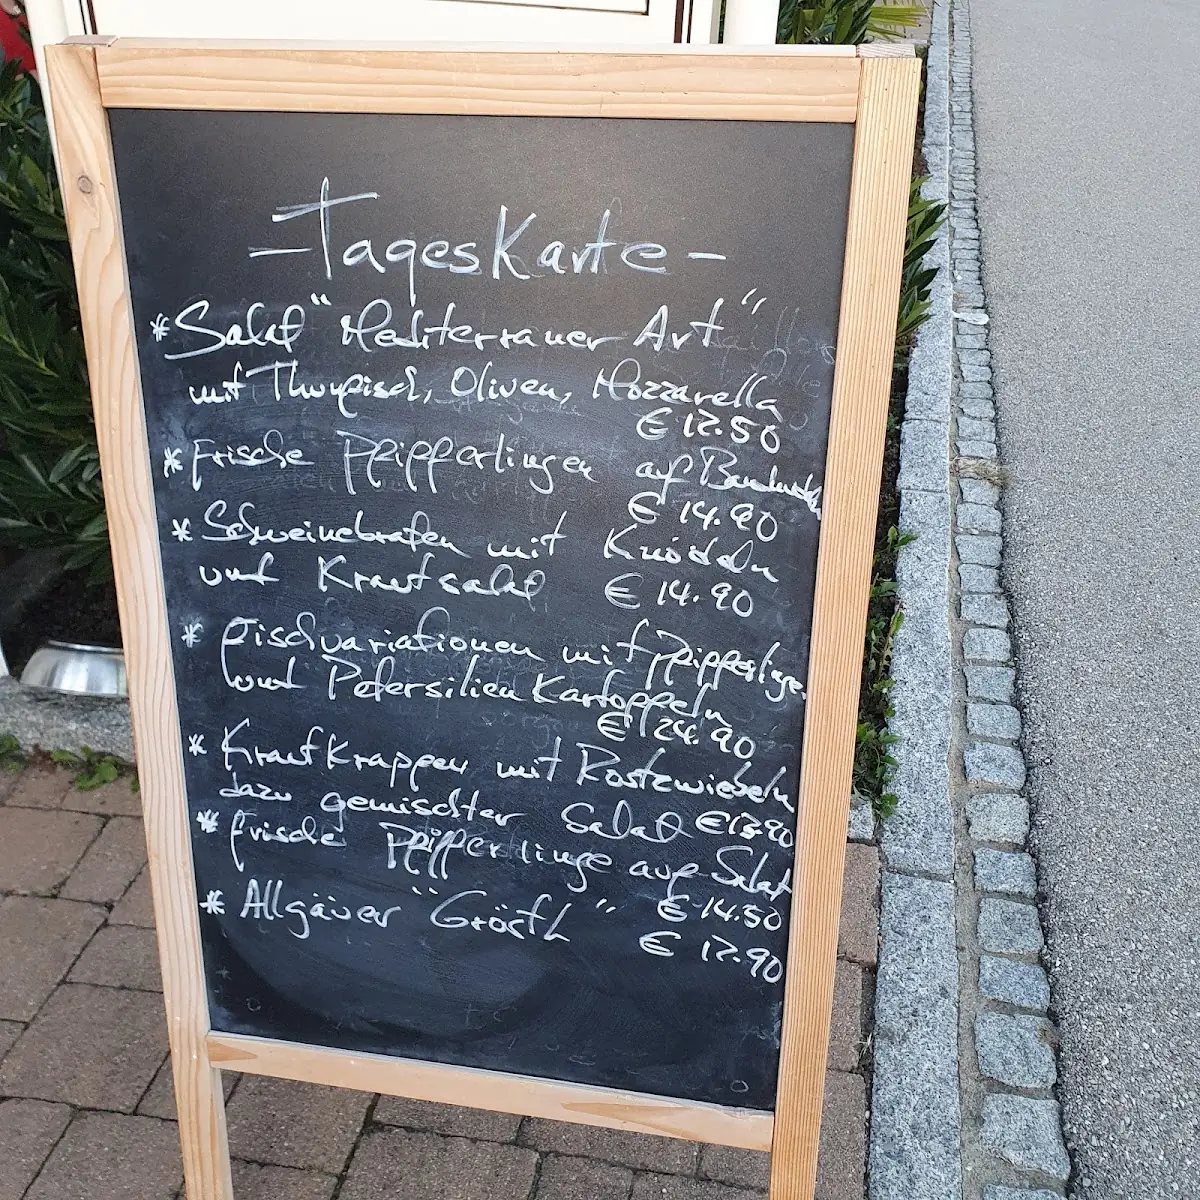 - TagesKarte -
* Salat "Mediterraner Art"
mit Thunfisch, Oliven, Mozzarella
€ 12.50
* Frische Pfifferlingen auf Bandnudeln
€ 14.90
* Schweinebraten mit Knödeln
und Krautsalat € 14.90
* Fischvariationen mit Pfifferlingen
und Petersilien Kartoffeln
€ 24.90
* Krautkrappen mit Röstzwiebeln
dazu gemischter Salat € 13.90
* Frische Pfifferlinge auf Salat
€ 14.50
* Allgäuer "Gröstl"
€ 12.90